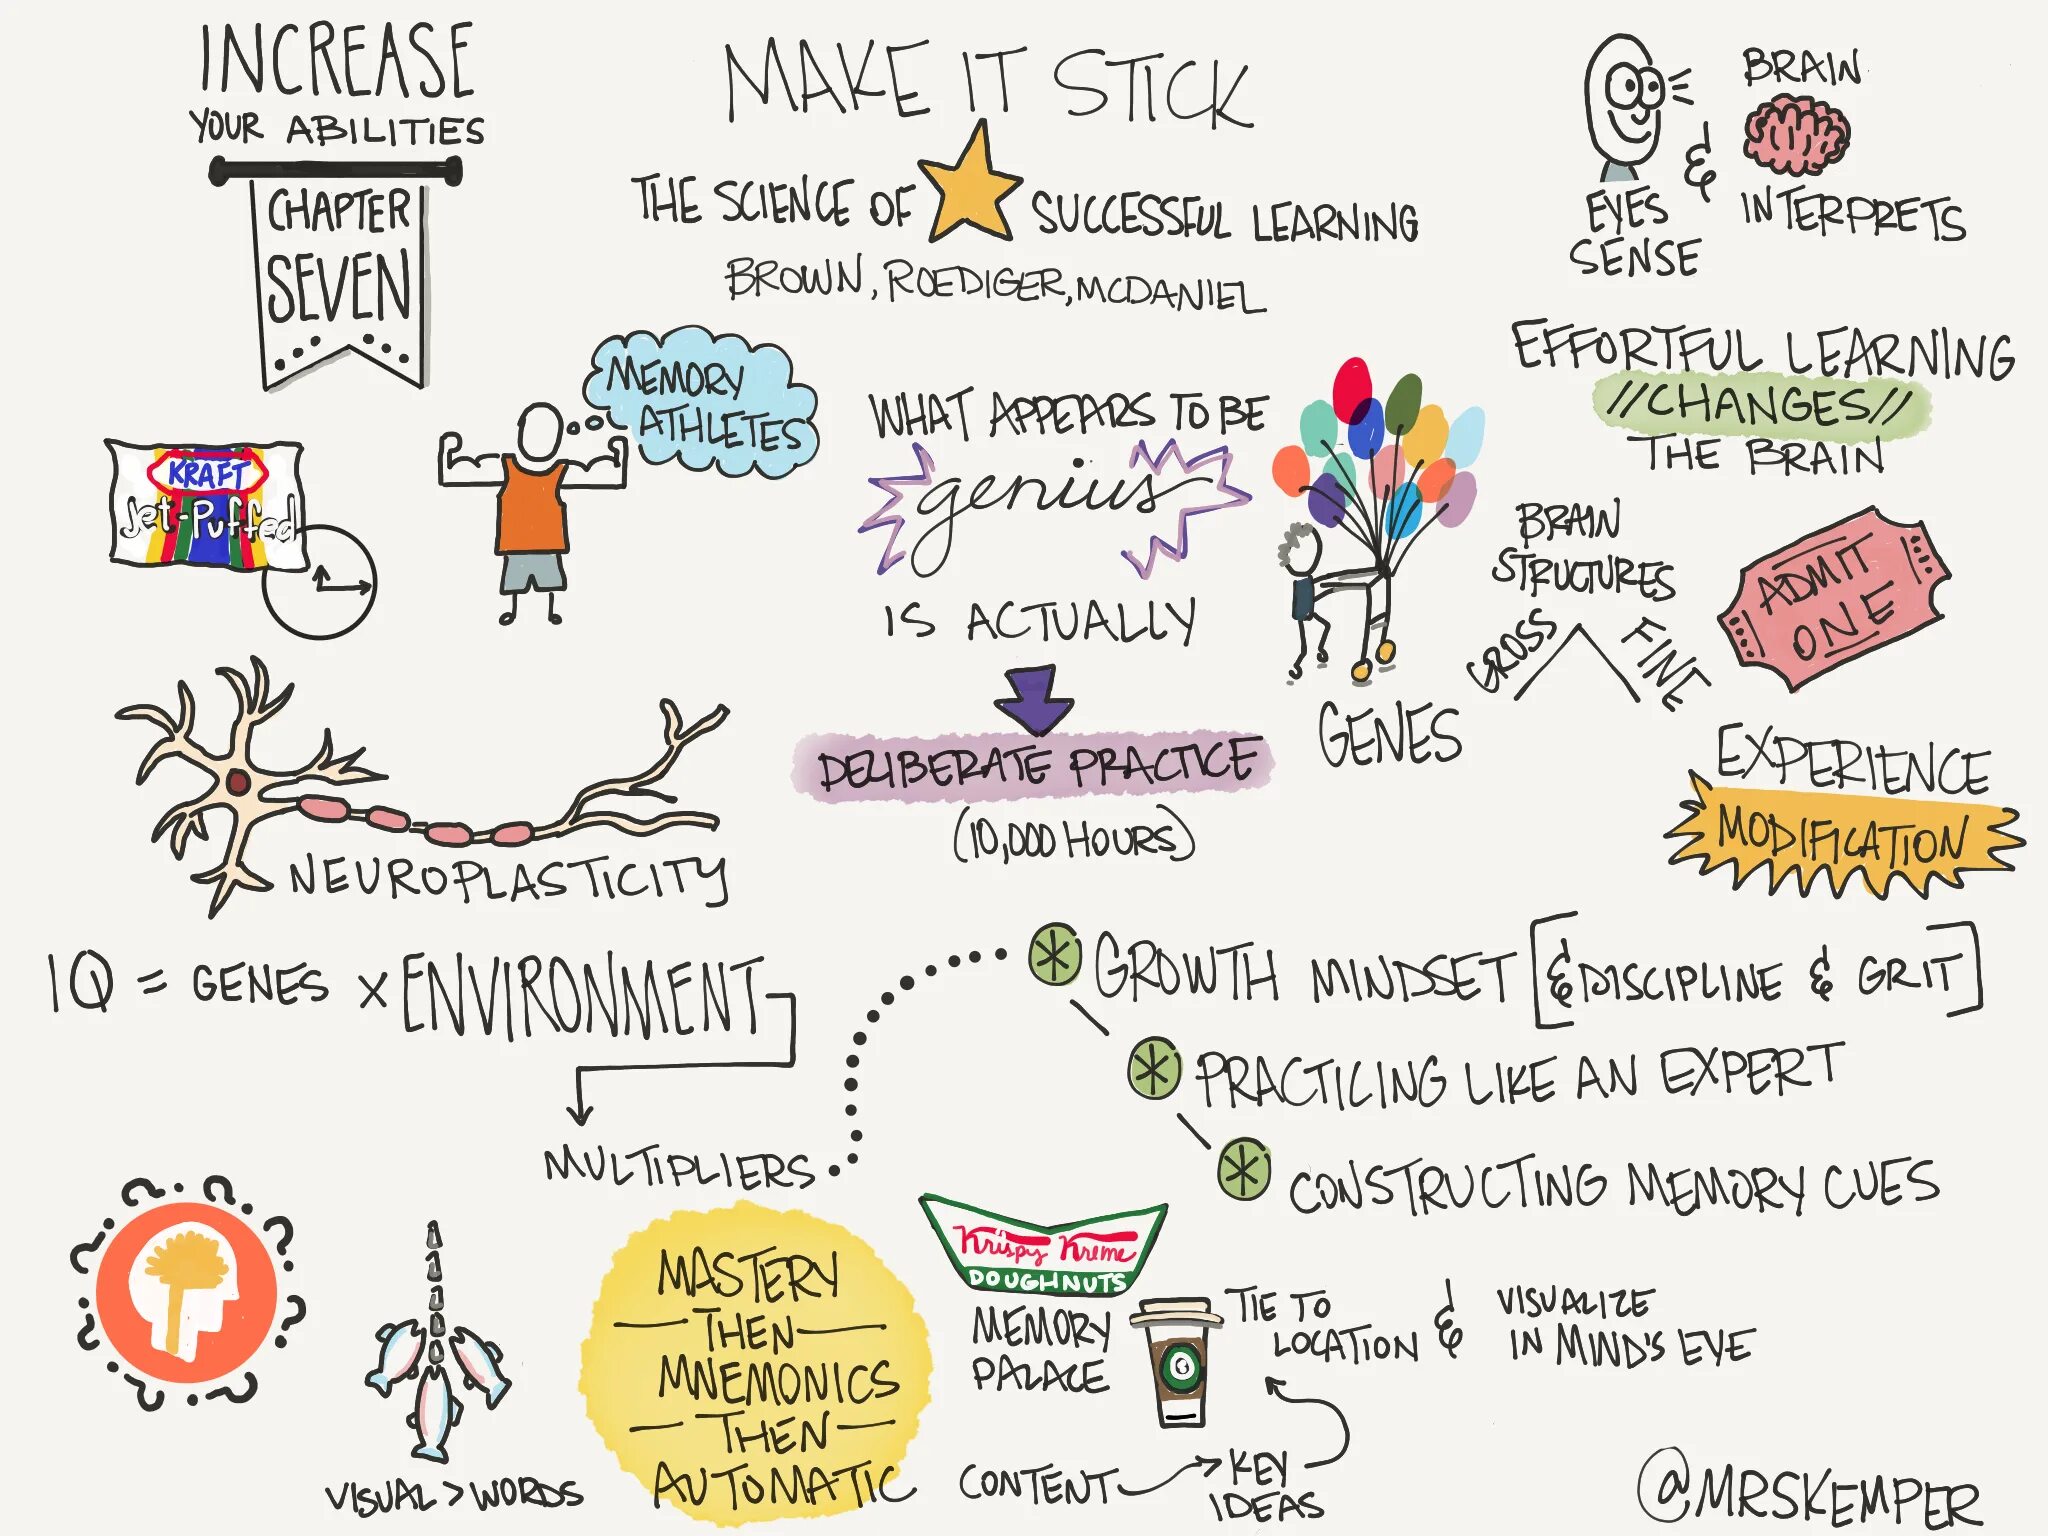 INCREASE
YOUR ABILITIES
CHAPTER
SEVEN
MAKE IT STICK
THE SCIENCE OF SUCCESSFUL LEARNING
BROWN, ROEDIGER, MCDANIEL
BRAIN
INTERPRETS
&
EYES
SENSE
EFFORTFUL LEARNING
//CHANGES//
THE BRAIN
MEMORY
ATHLETES
KRAFT
Jet-Puffed
WHAT APPEARS TO BE
genius
IS ACTUALLY
DELIBERATE PRACTICE
(10,000 HOURS)
GENES
BRAIN
STRUCTURES
GROSS
FINE
ADMIT
ONE
EXPERIENCE
MODIFICATION
NEUROPLASTICITY
IQ = GENES X ENVIRONMENT
MULTIPLIERS
* GROWTH MINDSET [& DISCIPLINE & GRIT]
* PRACTICING LIKE AN EXPERT
* CONSTRUCTING MEMORY CUES
? ? ? ? ? ? ? ?
VISUAL > WORDS
MASTERY
THEN
MNEMONICS
THEN
AUTOMATIC
Krispy Kreme
DOUGHNUTS
MEMORY
PALACE
TIE TO
LOCATION
&
VISUALIZE
IN MIND'S EYE
CONTENT
KEY
IDEAS
@MRSKEMPER